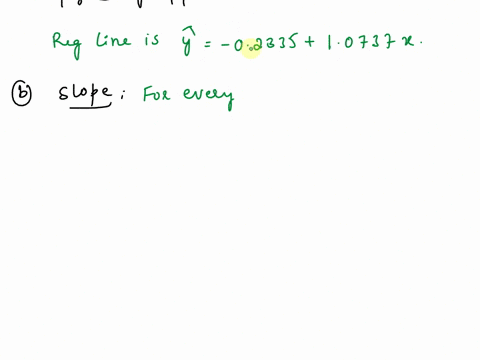 Reg Line is ŷ = -0.2335 + 1.0737 x.
ⓑ Slope: For every